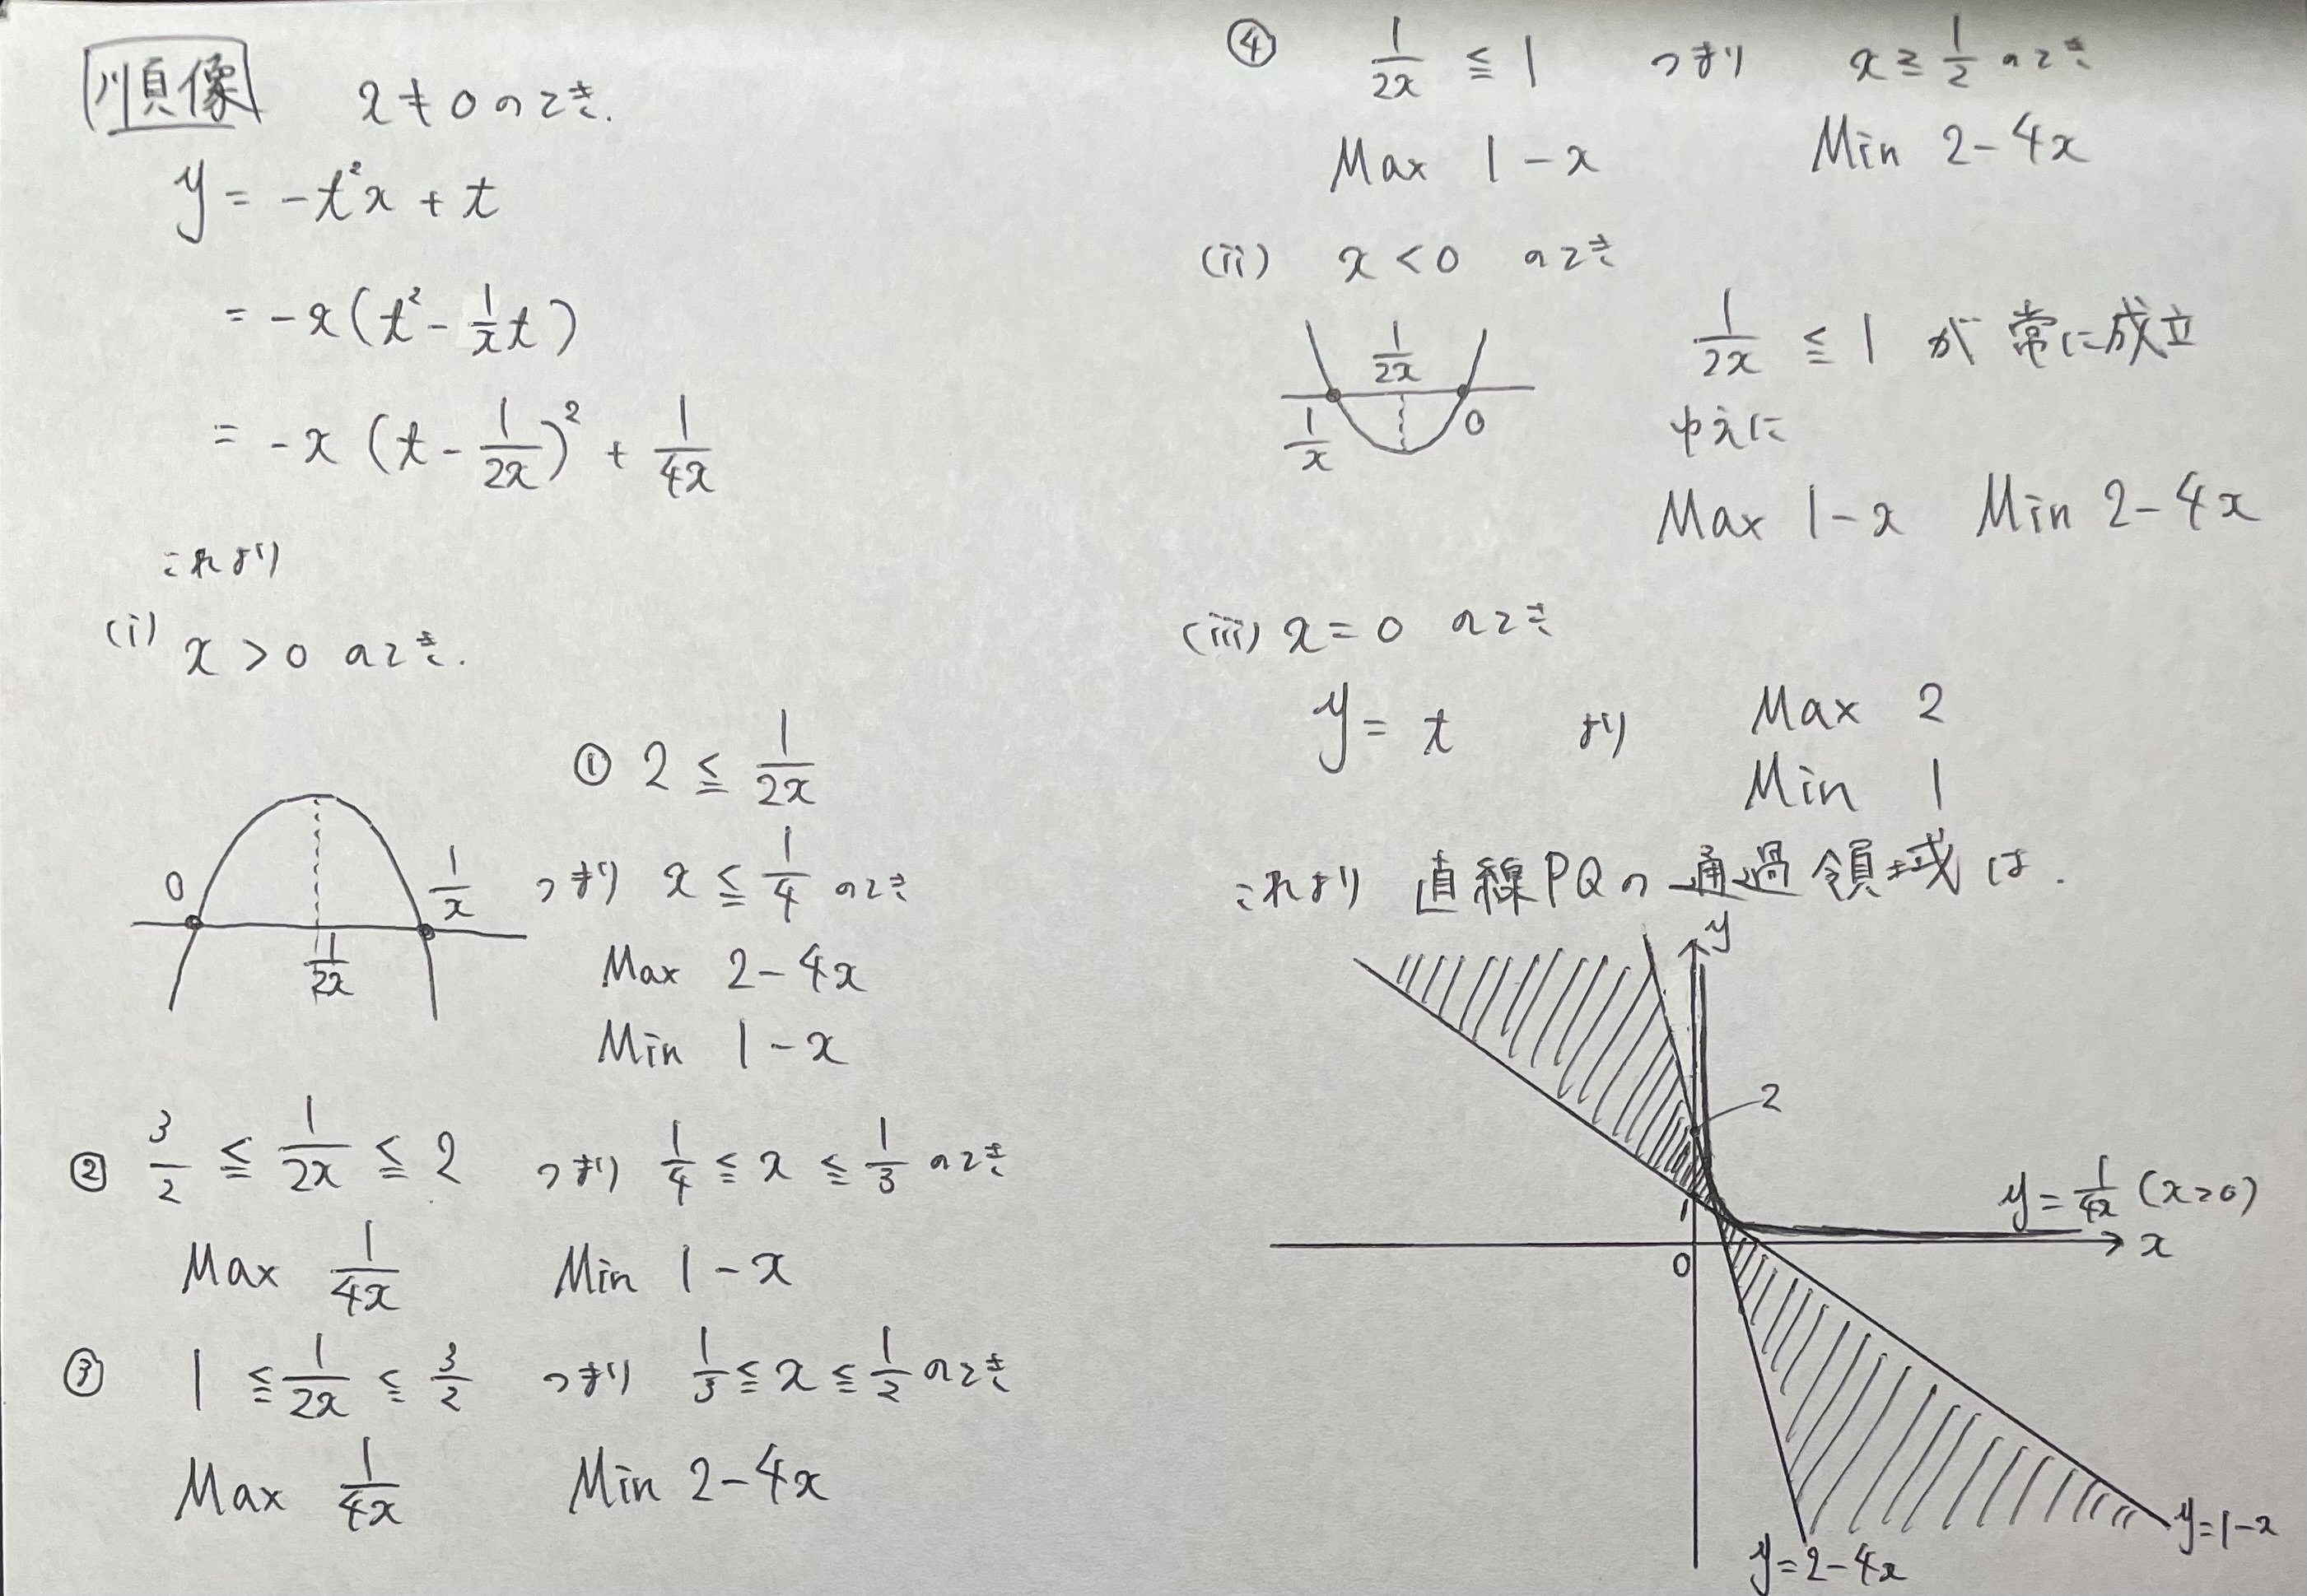 順像 x≠0のとき.
y = -t²x + t
= -x(t² - 1/x t)
= -x (t - 1/2x)² + 1/4x
これより
(i) x > 0 のとき.
0 1/x 1/2x
① 2 ≦ 1/2x
つまり x ≦ 1/4 のとき
Max 2-4x
Min 1-x
② 3/2 ≦ 1/2x ≦ 2 つまり 1/4 ≦ x ≦ 1/3 のとき
Max 1/4x Min 1-x
③ 1 ≦ 1/2x ≦ 3/2 つまり 1/3 ≦ x ≦ 1/2 のとき
Max 1/4x Min 2-4x
④ 1/2x ≦ 1 つまり x ≧ 1/2 のとき
Max 1-x Min 2-4x
(ii) x < 0 のとき
1/x 1/2x 0
1/2x ≦ 1 が 常に成立
ゆえに
Max 1-x Min 2-4x
(iii) x = 0 のとき
y = t より Max 2
Min 1
これより 直線PQの通過領域は.
y
2
1
y = 1/4x (x>0)
0 x
y=1-x
y=2-4x